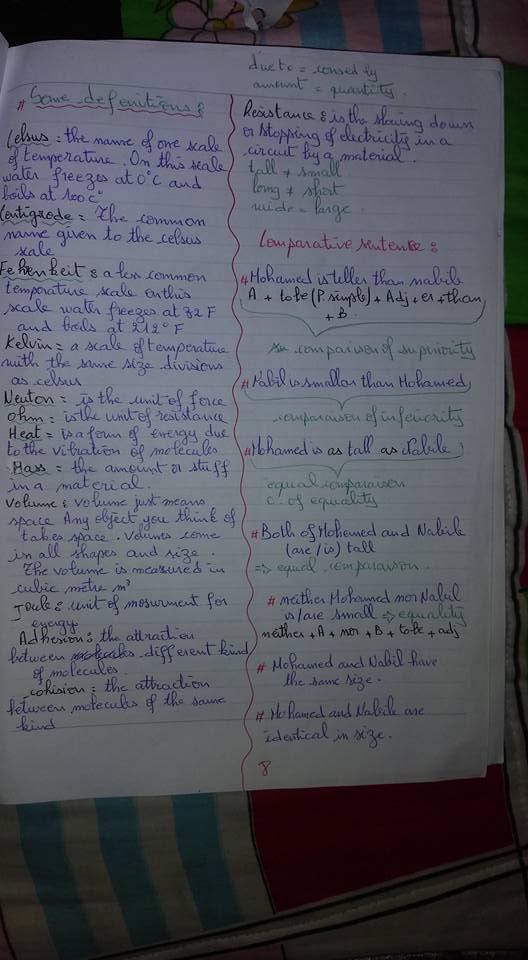 due to = consed by
amount = quantity.
# Some definitions :
Celsus : the name of one scale
of temperature. On this scale
water freezes at 0°C and
boils at 100 C°
Centigrade = The common
name given to the celsus
scale
Fehenheit : a less common
temperature scale on this
scale water freezes at 32 F
and boils at 212° F
Kelvin = a scale of temperature
with the same size divisions
as celsus
Neuton = is the unit of force
ohm = is the unit of resistance
Heat = is a form of energy due
to the vibration of molecules
Mass = the amount or stuff
in a material.
Volume : volume just means
space Any object you think of
takes space. Volumes come
in all shapes and size.
The volume is measured in
cubic metre m³
Joule : unit of mesurment for
energy
Adhesion : the attraction
between different kind
of molecules.
cohision : the attraction
between molecules of the same
kind
Resistance : is the slowing down
or stopping of electricity in a
circuit by a material.
tall ≠ small
long ≠ short
wide = large.
Comparative sentence :
# Mohamed is teller than nabile
A + to be (P. simple) + Adj + er + than
+ B
comparaison of superiority
# Nabil is smaller than Mohamed
comparaison of inferiority
# Mohamed is as tall as Nabile
equal comparaison
c. of equality
# Both of Mohamed and Nabile
(are/is) tall
=> equal comparaison.
# neither Mohamed nor Nabil
is/are small => equality
neither + A + nor + B + to be + adj
# Mohamed and Nabil have
the same size.
# Mohamed and Nabile are
identical in size.
8